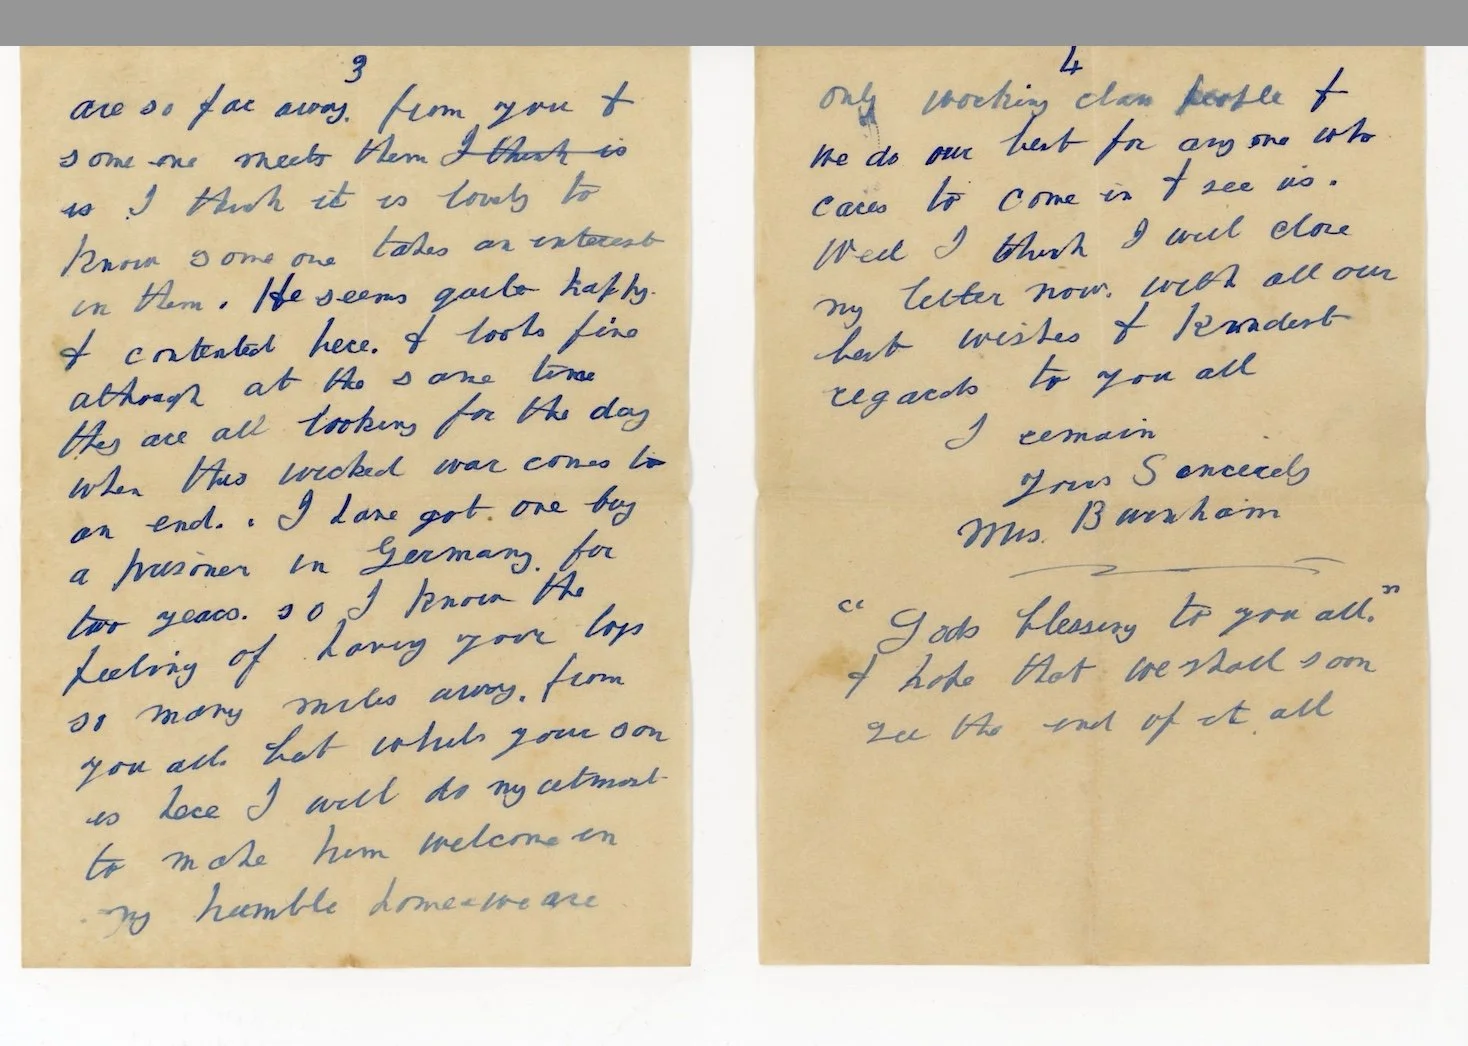 3
are so far away. from you &
some one meets them I think is
is I think it is lovely to
know some one takes an interest
in them. He seems quite happy.
& contented here. & looks fine
although at the same time
they are all looking for the day
when this wicked war comes to
an end. . I have got one boy
a prisoner in Germany. for
two years. so I know the
feeling of having your boys
so many miles away. from
you all. but whilst your son
is here I will do my utmost
to make him welcome in
my humble home we are
4
only working class people &
we do our best for any one who
cares to come in & see us.
Well I think I will close
my letter now. with all our
best wishes & Kindest
regards to you all
I remain
Yours Sincerely
Mrs. Burnham
"Gods blessing to you all."
& hope that we shall soon
see the end of it all